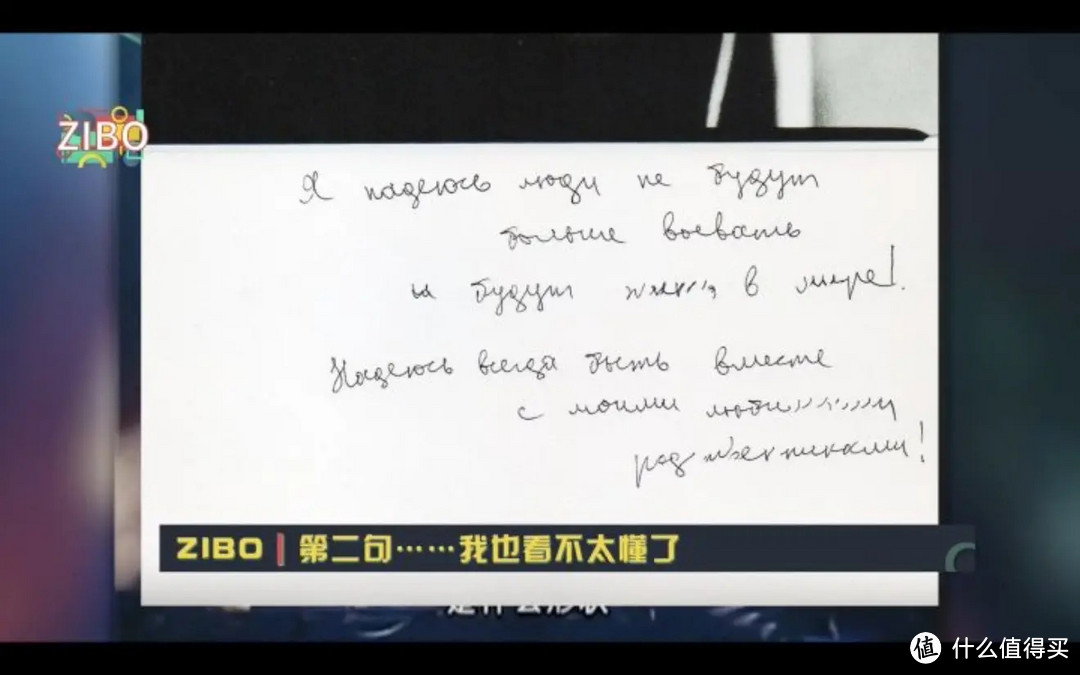 ZIBO
Я надеюсь люди не будут
больше воевать
и будут жить в мире!
Надеюсь всегда быть вместе
с моими любимыми
родственниками!
ZIBO | 第二句……我也看不太懂了
值 什么值得买